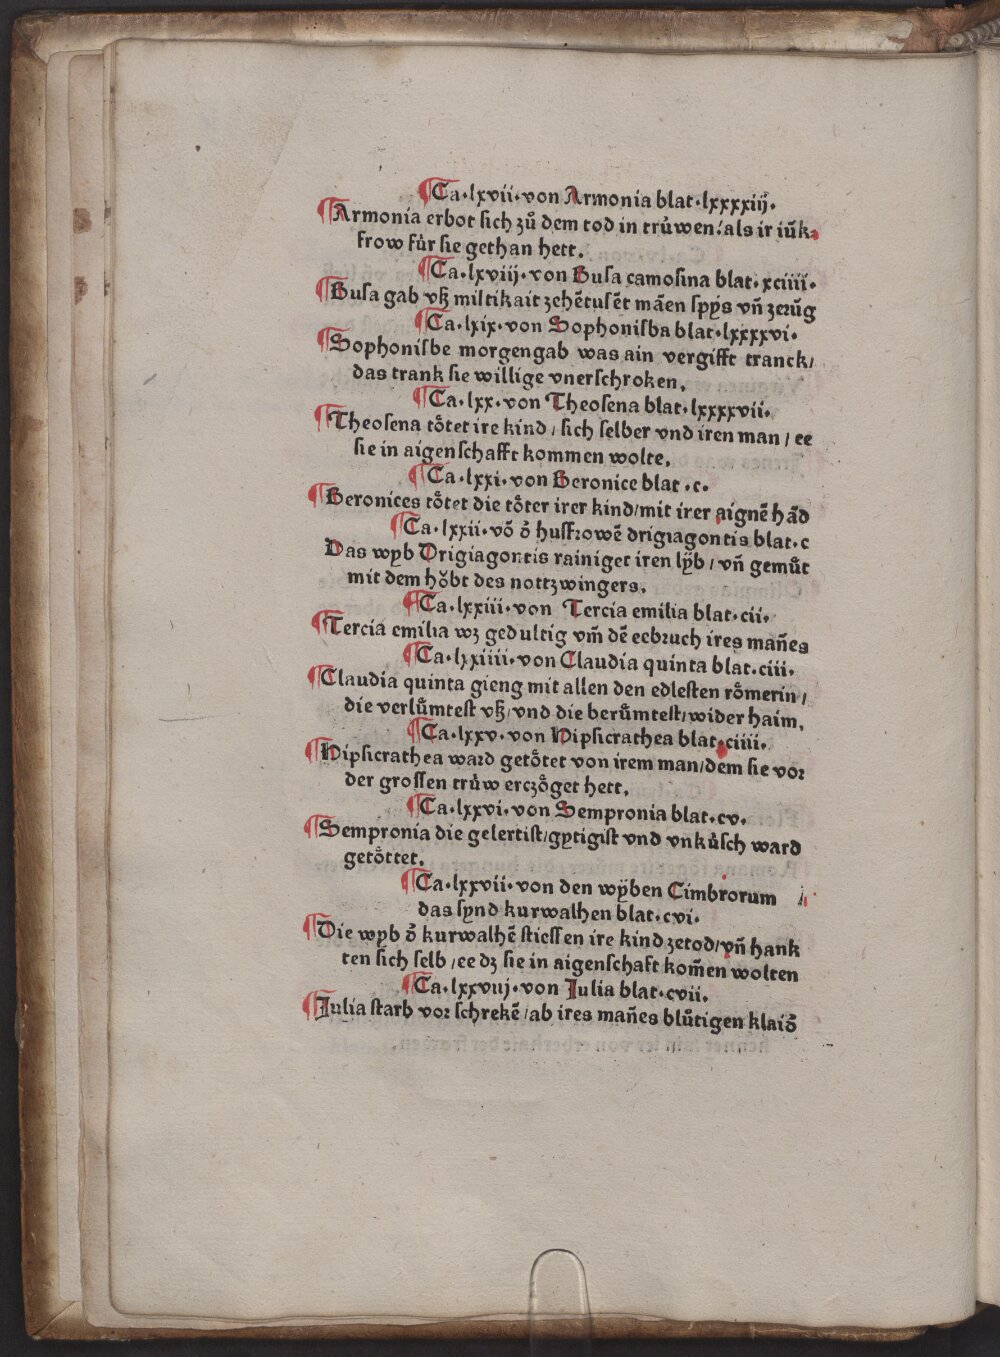 ¶Ca·lxvii·von Armonia blat·lxxxxiij·
¶Armonia erbot sich zů dem tod in trůwen/als ir iūk-
frow fůr sie gethan hett.
¶Ca·lxviij·von Busa camosina blat·xciiii·
¶Busa gab vß miltikait zehētusēt māen spÿs vñ zerūg
¶Ca·lxix·von Sophonisba blat·lxxxxvi·
¶Sophonisbe morgengab was ain vergifft tranck/
das trank sie willige vnerschroken.
¶Ca·lxx·von Theosena blat·lxxxxvii·
¶Theosena tôtet ire kind / sich selber vnd iren man / ee
sie in aigenschafft kommen wolte.
¶Ca·lxxi·von Beronice blat ·c·
¶Beronices tôtet die tôter irer kind/mit irer aignē hād
¶Ca·lxxii·võ ð husfrowē drigiagontis blat·c
Das wyb Drigiagontis rainiget iren lÿb / vñ gemůt
mit dem hǒbt des nottzwingers.
¶Ca·lxxiii·von Tercia emilia blat·cii·
¶Tercia emilia wz gedultig vm̄ dē eebruch ires mañes
¶Ca·lxxiiii·von Claudia quinta blat·ciii·
¶Claudia quinta gieng mit allen den edlesten rômerin /
die verlůmtest vß/vnd die berůmtest/wider haim.
¶Ca·lxxv·von Hipsicrathea blat·ciiii·
¶Hipsicrathea ward getôtet von irem man/dem sie vor
der grossen trůw erczôget hett.
¶Ca·lxxvi·von Sempronia blat·cv·
¶Sempronia die gelertist/gytigist vnd vnkůsch ward
getôttet.
¶Ca·lxxvii·von den wÿben Cimbrorum
das synd kurwalhen blat·cvi·
¶Die wyb ð kurwalhē stiessen ire kind zetod/vñ hank
ten sich selb /ee dz sie in aigenschaft kom̄en wolten
¶Ca·lxxviij·von Julia blat·cvii·
¶Julia starb vor schrekē /ab ires mañes blůtigen klaið